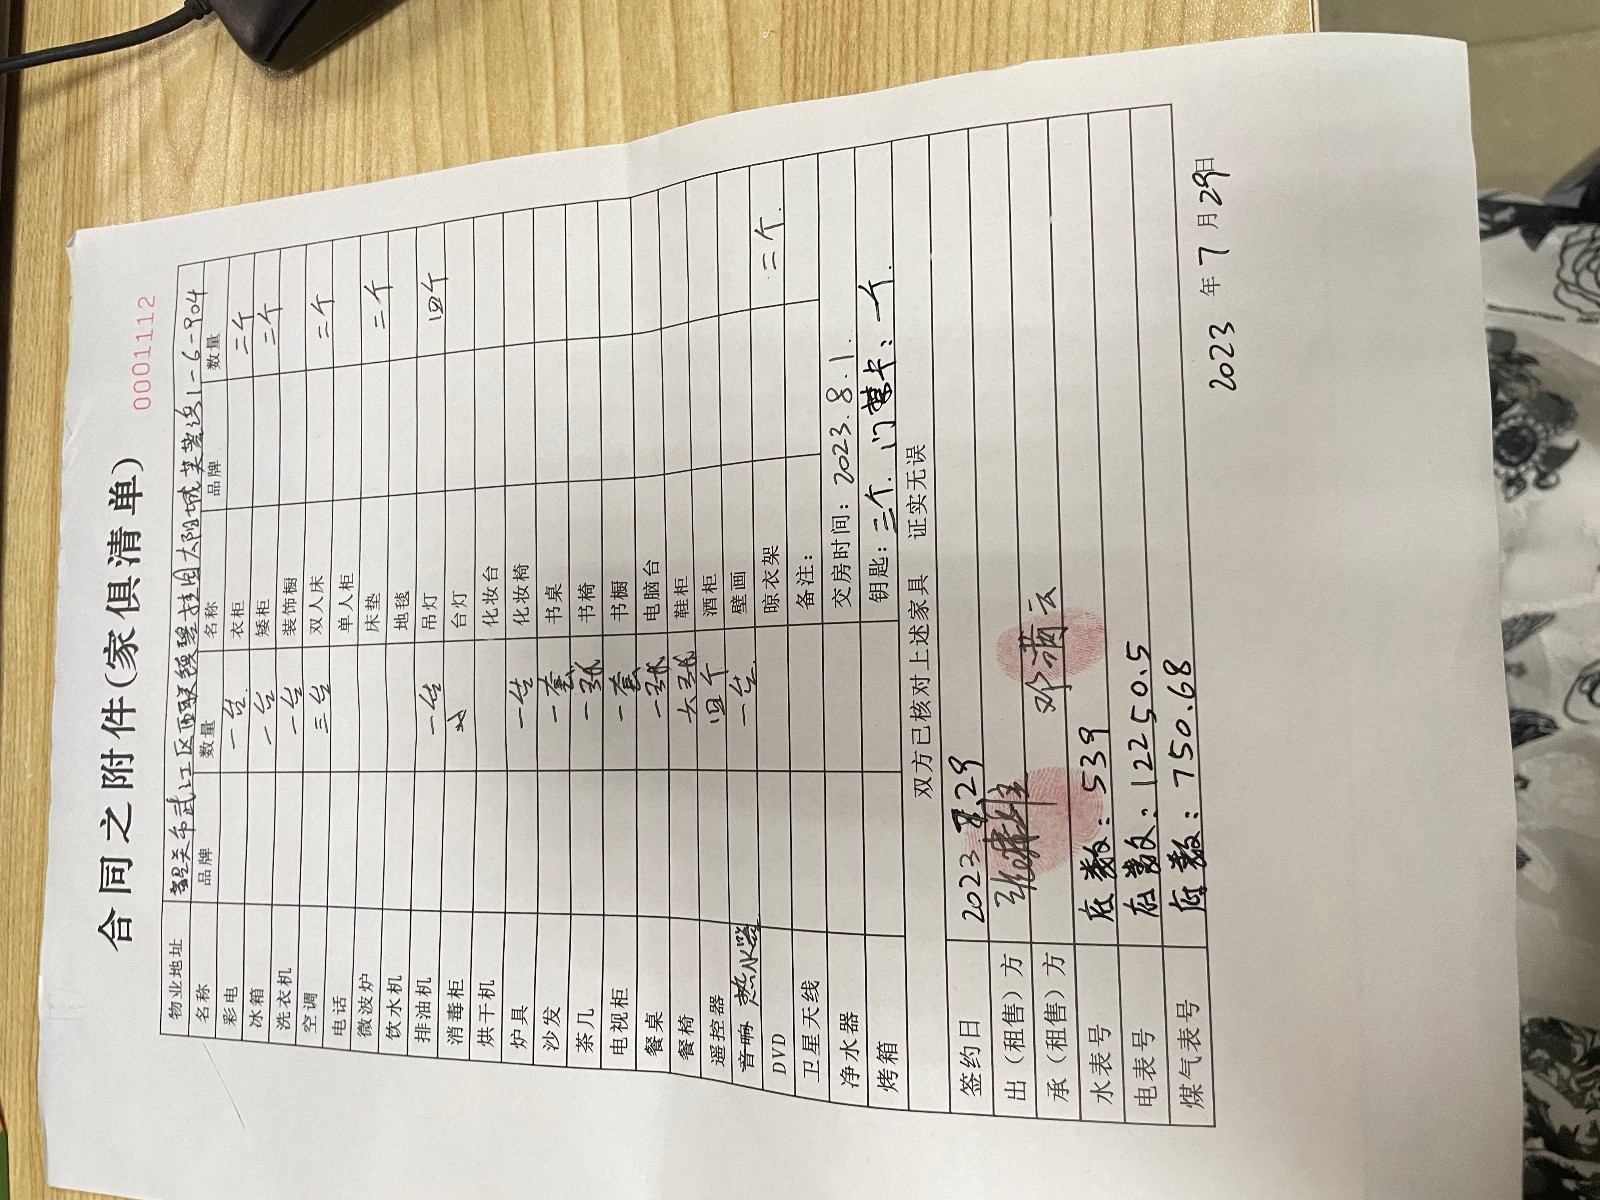 合同之附件(家俱清单)
0001112
物业地址 韶关市武江区西联镇碧桂园太阳城芙蓉滨1-6-904
名称 品牌 数量 名称 品牌 数量
彩电 一台 衣柜 二个
冰箱 一台 矮柜 二个
洗衣机 一台 装饰橱
空调 三台 双人床 三个
电话 单人柜
微波炉 床垫 二个
饮水机 地毯
排油机 一台 吊灯 四个
消毒柜 台灯
烘干机 化妆台
炉具 一台 化妆椅
沙发 一套 书桌
茶几 一张 书椅
电视柜 一套 书橱
餐桌 一张 电脑台
餐椅 六张 鞋柜
遥控器 四个 酒柜
音响 热水器 一台 壁画
DVD 晾衣架 三个.
卫星天线 备注:
净水器 交房时间: 2023.8.1.
烤箱 钥匙: 三个. 门禁卡: 一个.
双方已核对上述家具 证实无误
签约日 2023
出(租售)方
承(租售)方 邓满云
水表号 底数: 539
电表号 底数: 12250.5
煤气表号 底数: 750.68
2023 年 7 月 29日